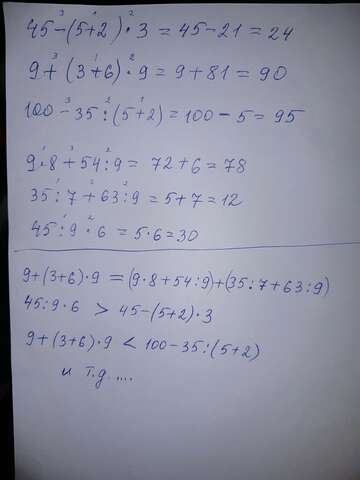 45-(5+2)·3 = 45-21 = 24
9+(3+6)·9 = 9+81 = 90
100-35:(5+2) = 100-5 = 95
9·8+54:9 = 72+6 = 78
35:7+63:9 = 5+7 = 12
45:9·6 = 5·6 = 30
9+(3+6)·9 = (9·8+54:9)+(35:7+63:9)
45:9·6 > 45-(5+2)·3
9+(3+6)·9 < 100-35:(5+2)
и т.д. ....